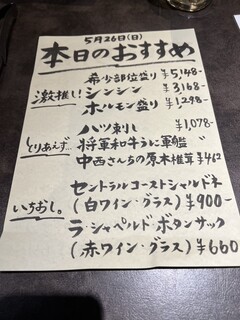 5月26日(日)
本日のおすすめ
希少部位盛り ¥5,148-
激推し! シンシン ¥3,168-
ホルモン盛り ¥1,298-
ハツ刺し ¥1,078-
とりあえず… 将軍和牛うに軍艦
中西さんちの原木椎茸 ¥462
セントラルコーストシャルドネ
いちおし。 (白ワイン・グラス) ¥900-
ラ・シャペルド ボタンサック
(赤ワイン・グラス) ¥660